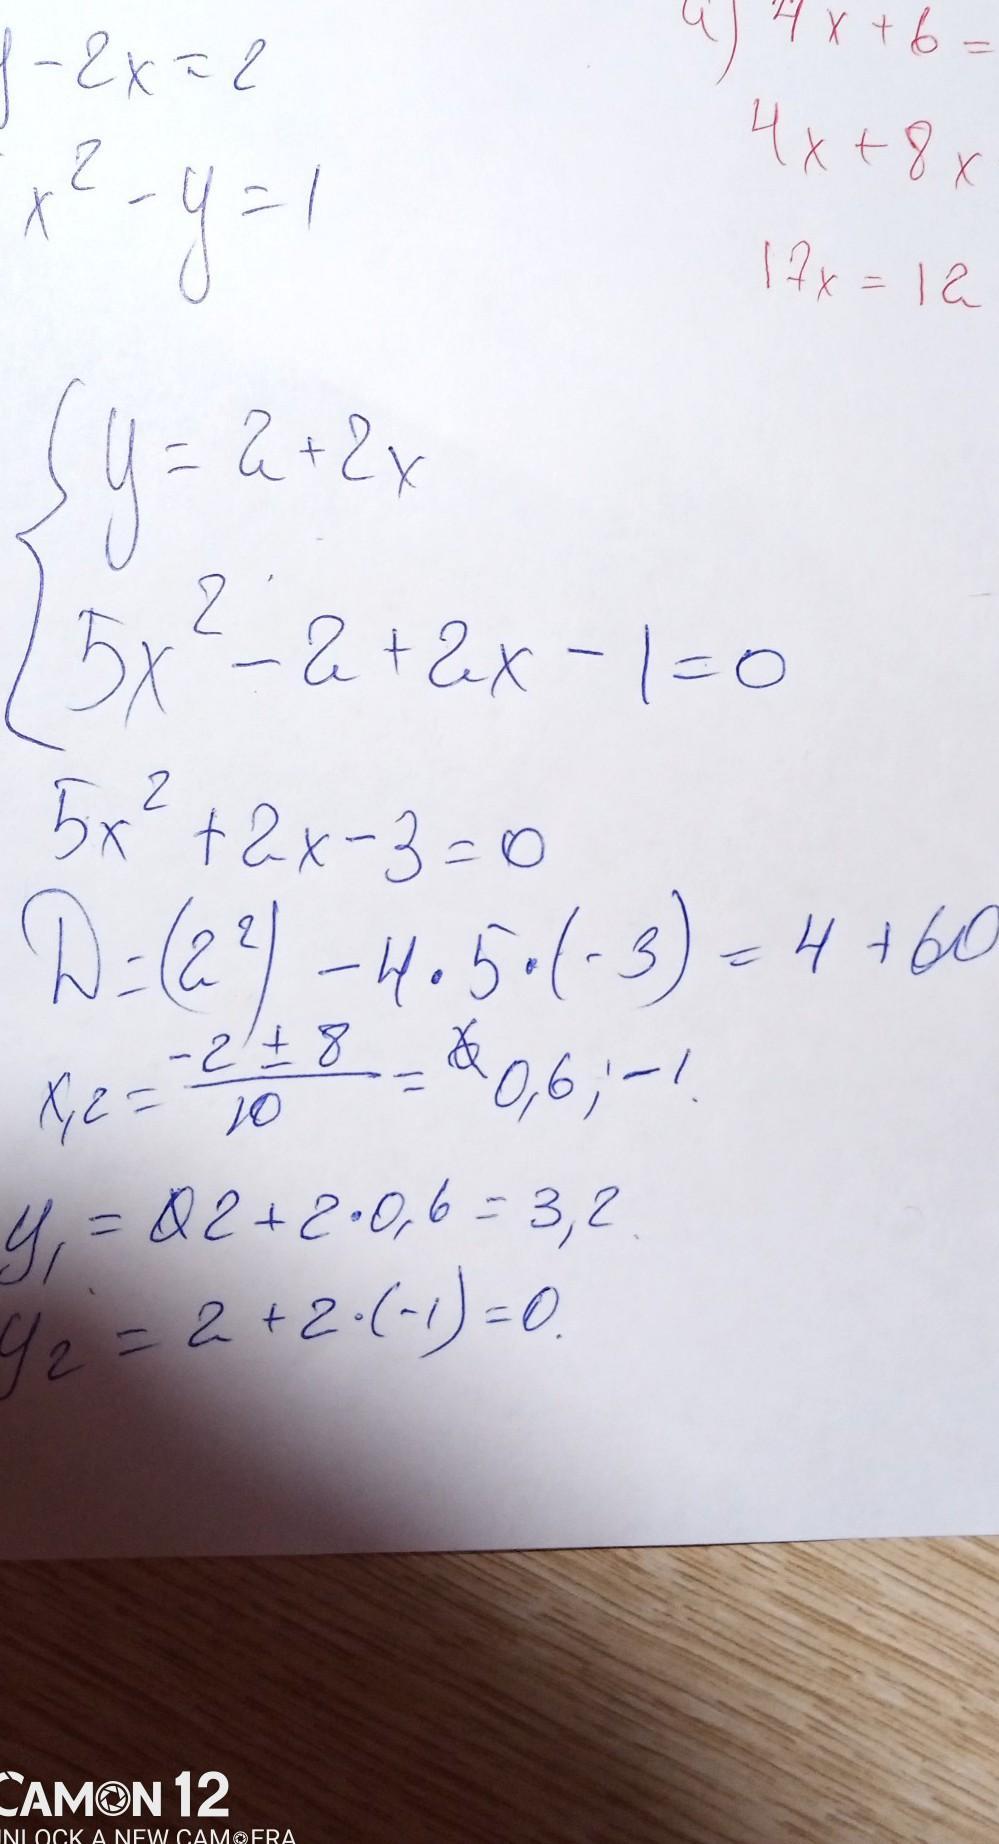 y-2x=2
x²-y=1
a) 4x+6=
4x+8x
17x=12
{y=2+2x
5x²-2+2x-1=0
5x²+2x-3=0
D=(2²)-4·5·(-3)=4+60
x,2=-2±8/10=0,6;-1.
y₁=2+2·0,6=3,2.
y₂=2+2·(-1)=0.
CAMON 12
UNLOCK A NEW CAMERA